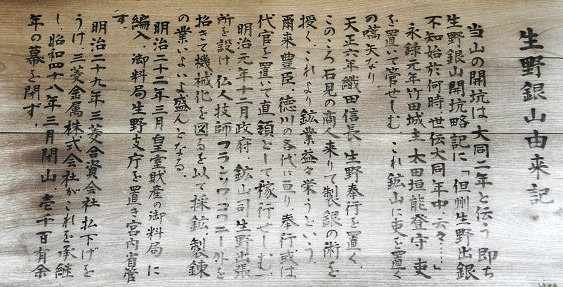 生野銀山由来記
当山の開坑は大同二年と伝う 即ち
生野銀山開坑略記に「但州生野出銀
不知始於何時 世伝大同年中云々…」
永禄元年竹田城主太田垣能登守 吏
を置いて管せしむ これ鉱山に吏を置く
の嚆矢なり
天正六年織田信長生野奉行を置く、
このころ石見の商人来りて製銀の術を
授く、これより鉱業益々栄うという。
爾来豊臣、徳川の各代に亘り 奉行或は
代官を置いて直領として稼行せしむ
明治元年十二月政府 鉱山司生野出張
所を設け 仏人技師フランソワコワニー外を
招きて機械化を図るを以て採鉱製錬
の業いよいよ盛んとなる。
明治二十二年三月皇室財産の御料局に
編入、御料局生野支庁を置き宮内省管
す。
明治二十九年三菱合資会社 払下げを
うけ、三菱金属株式会社がこれを承継
し、昭和四十八年三月閉山、壱千百有余
年の幕を閉ず。